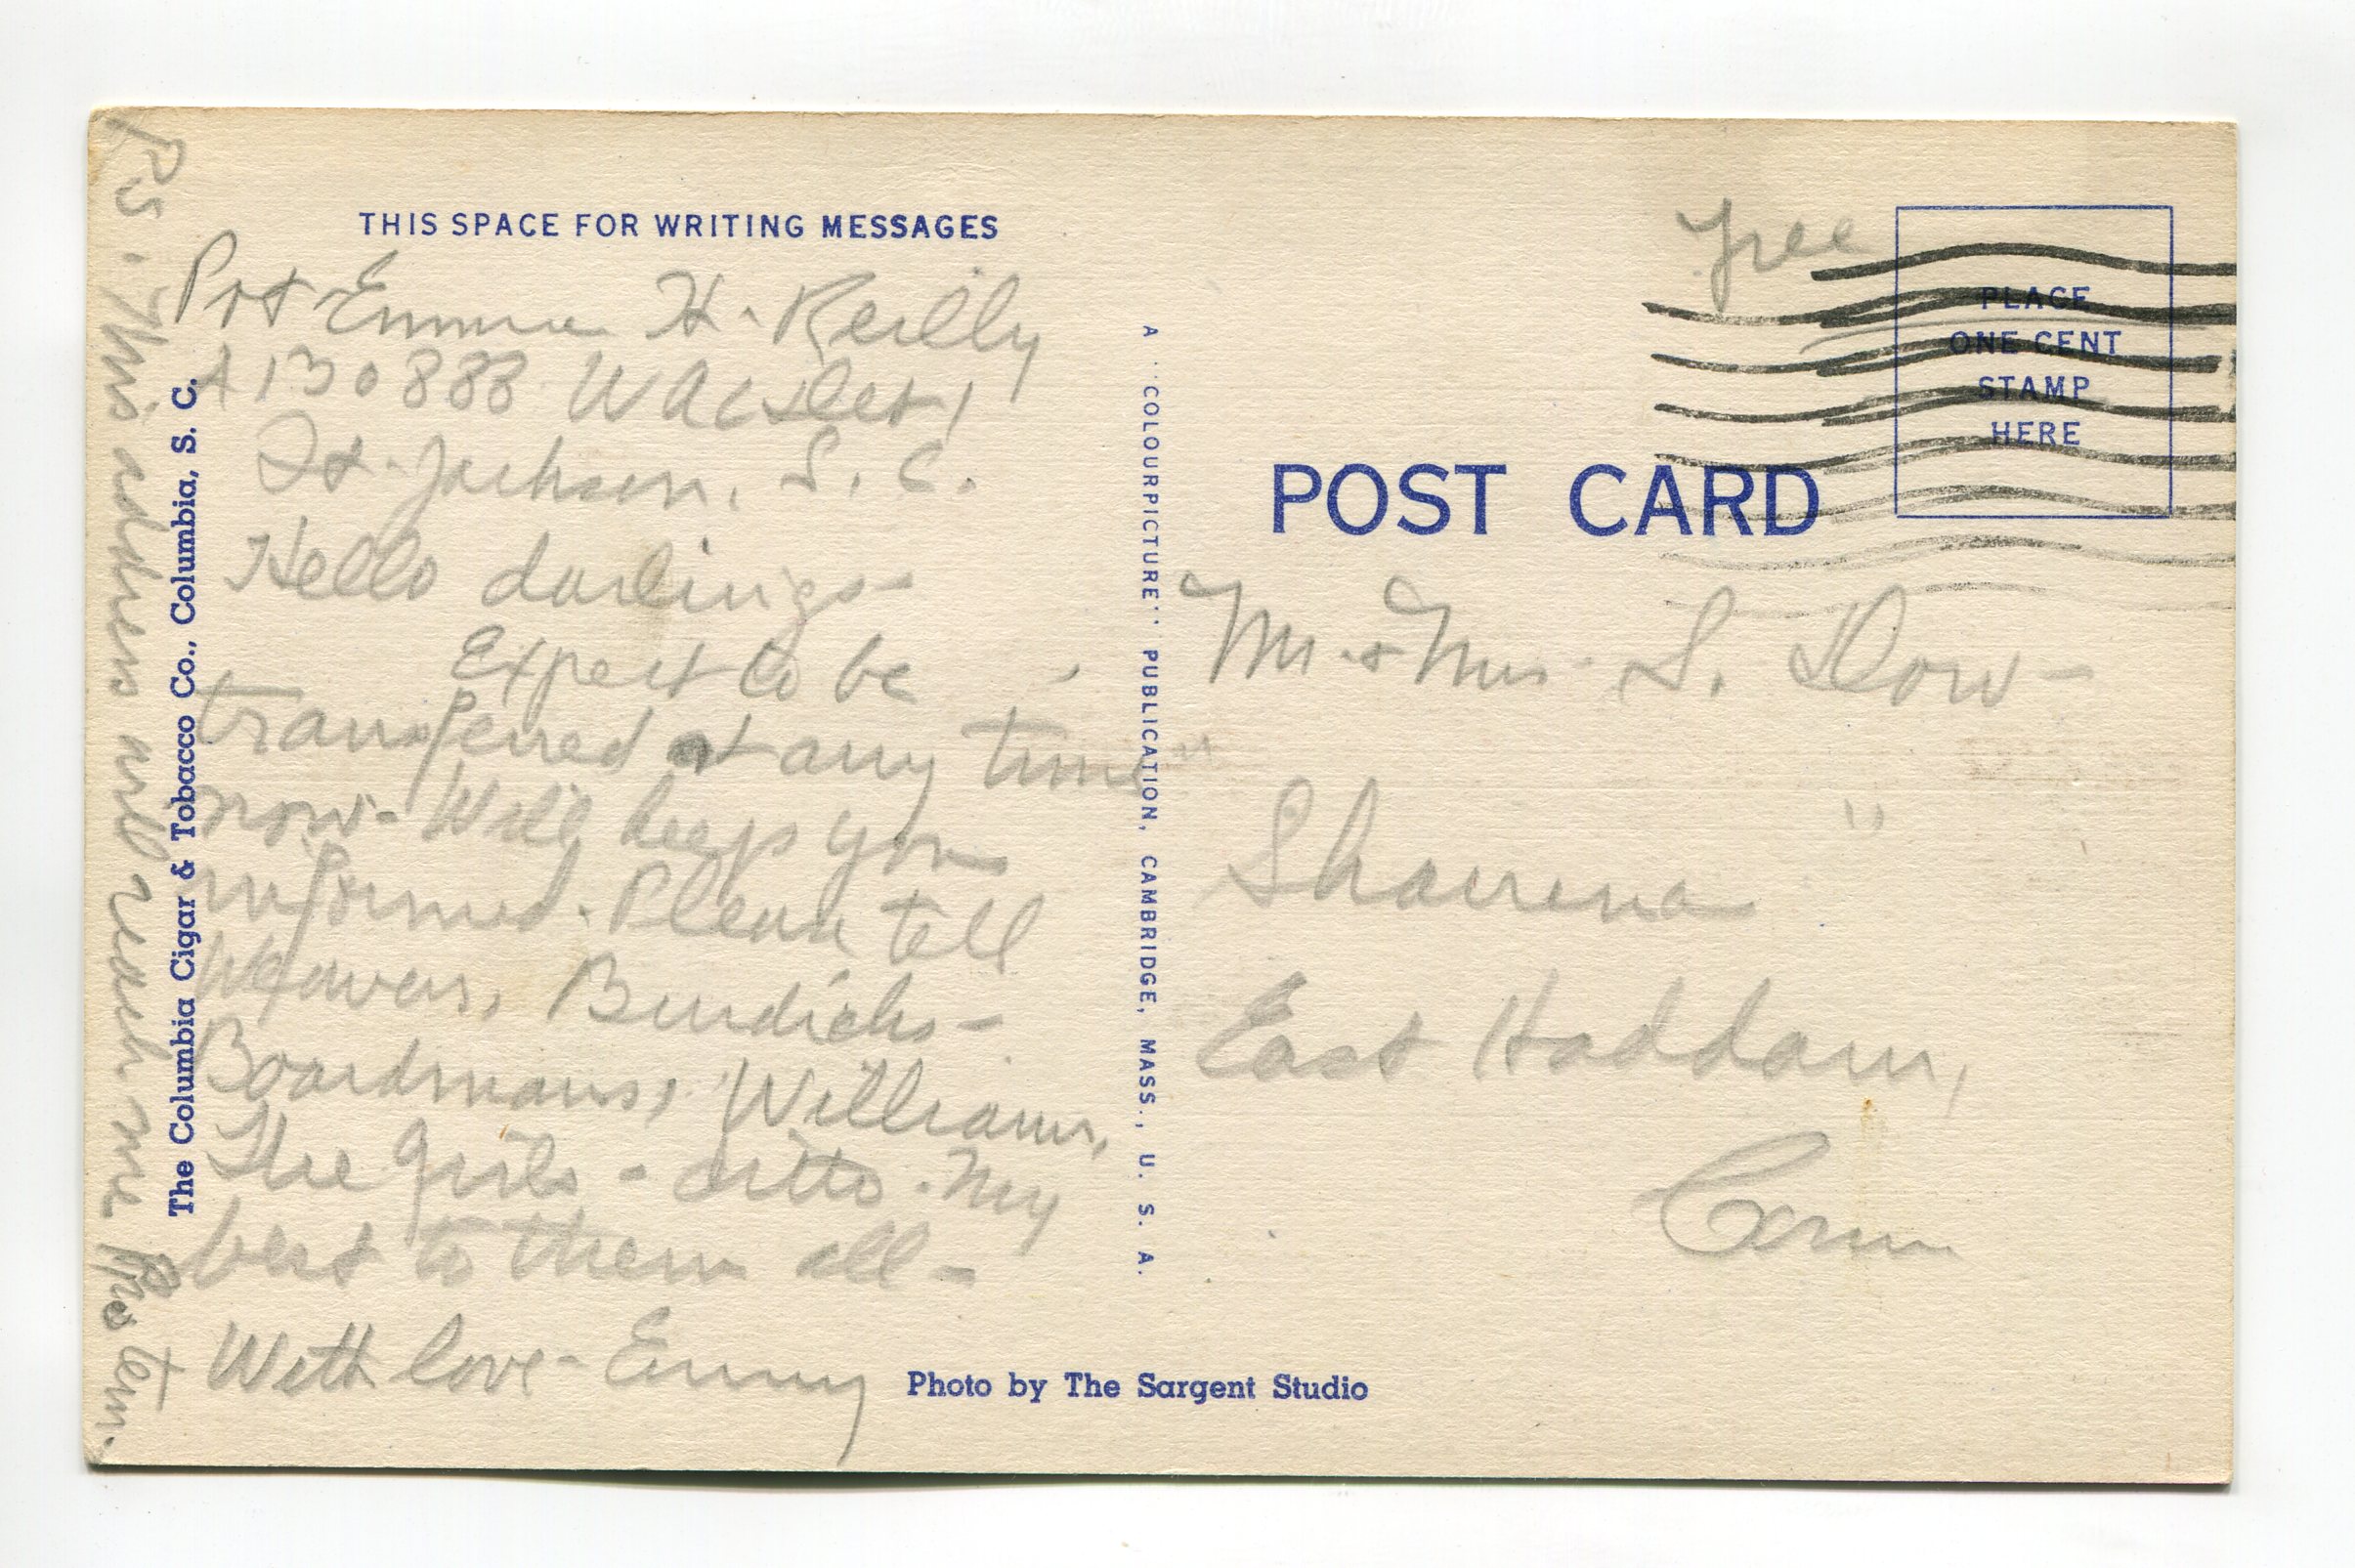 THIS SPACE FOR WRITING MESSAGES
Pvt Emma H. Reilly
A130888 WAC
Ft. Jackson, S. C.
Hello darlings -
Expect to be
transferred at any time
now - Will keep you
informed. Please tell
Weavers, Burdicks -
Boardmans, Williams,
The girls - ditto. My
best to them all -
With love - Emmy
P.S. This address will reach me Pro tem.
The Columbia Cigar & Tobacco Co., Columbia, S. C.
A "COLOURPICTURE" PUBLICATION, CAMBRIDGE, MASS., U. S. A.
Photo by The Sargent Studio
Free
PLACE
ONE CENT
STAMP
HERE
POST CARD
Mr. & Mrs. S. Dow -
East Haddam,
Conn